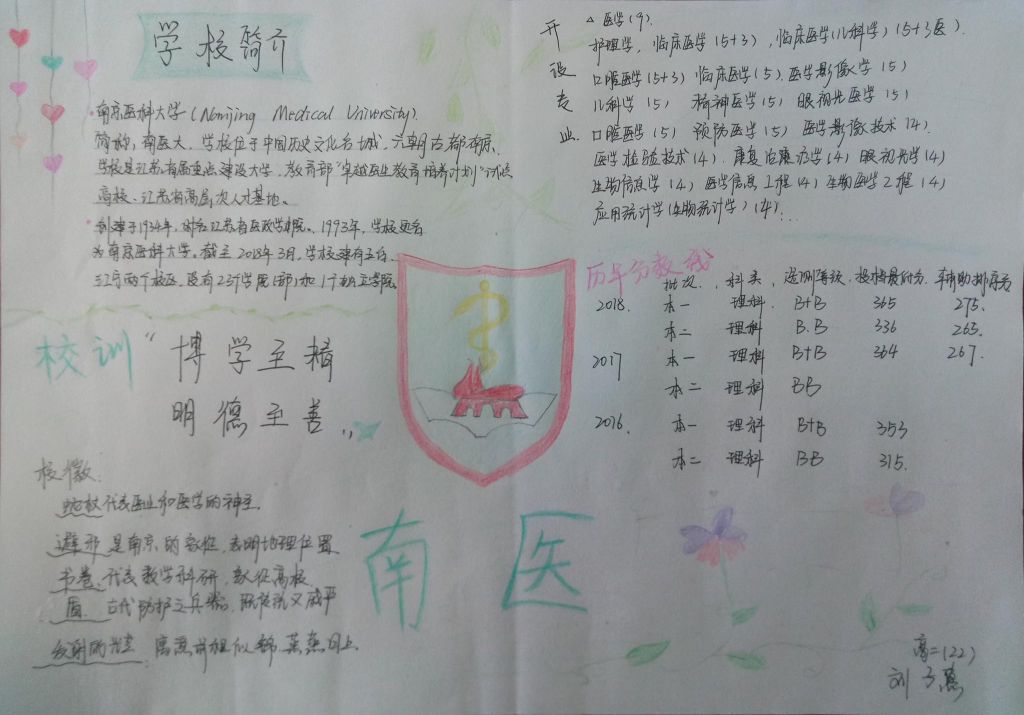 学校简介
南京医科大学(Nanjing Medical University)
简称，南医大，学校位于中国历史文化名城、六朝古都南京.
学校是江苏省属重点建设大学，教育部"卓越医生教育培养计划"试点
高校、江苏省高层次人才基地。
创建于1934年，时名江苏省医政学院。1993年，学校更名
为南京医科大学。截至2018年3月，学校建有五台、
江宁两个校区，设有23个学院(部)和1个独立学院
校训"博学至精
明德至善"
校徽
蛇杖代表医业和医学的神圣.
辟邪是南京的象征,表明地理位置
书卷，代表教学科研，象征高校.
盾.古代防护之兵器,
开设专业
△医学(9)
护理学，临床医学(5+3),临床医学(儿科学)(5+3医).
口腔医学(5+3) 临床医学(5).医学影像学(5)
儿科学(5) 精神医学(5) 眼视光医学(5)
口腔医学(5) 预防医学(5) 医学影像技术(4).
医学检验技术(4).康复治疗学(4)眼视光学(4)
生物信息学(4)医学信息工程(4)生物医学工程(4)
应用统计学(生物统计学)(4)...
历年分数线
批次.,科类,选测等级,投档最低分.辅助排序分
2018 本一 理科. B+B 365 275.
本二 理科 B.B 336 263.
2017 本一 理科 B+B 364 267.
本二 理科 BB
2016. 本一 理科 B+B 353
本二 理科 BB 315.
南医
高二(22)
刘